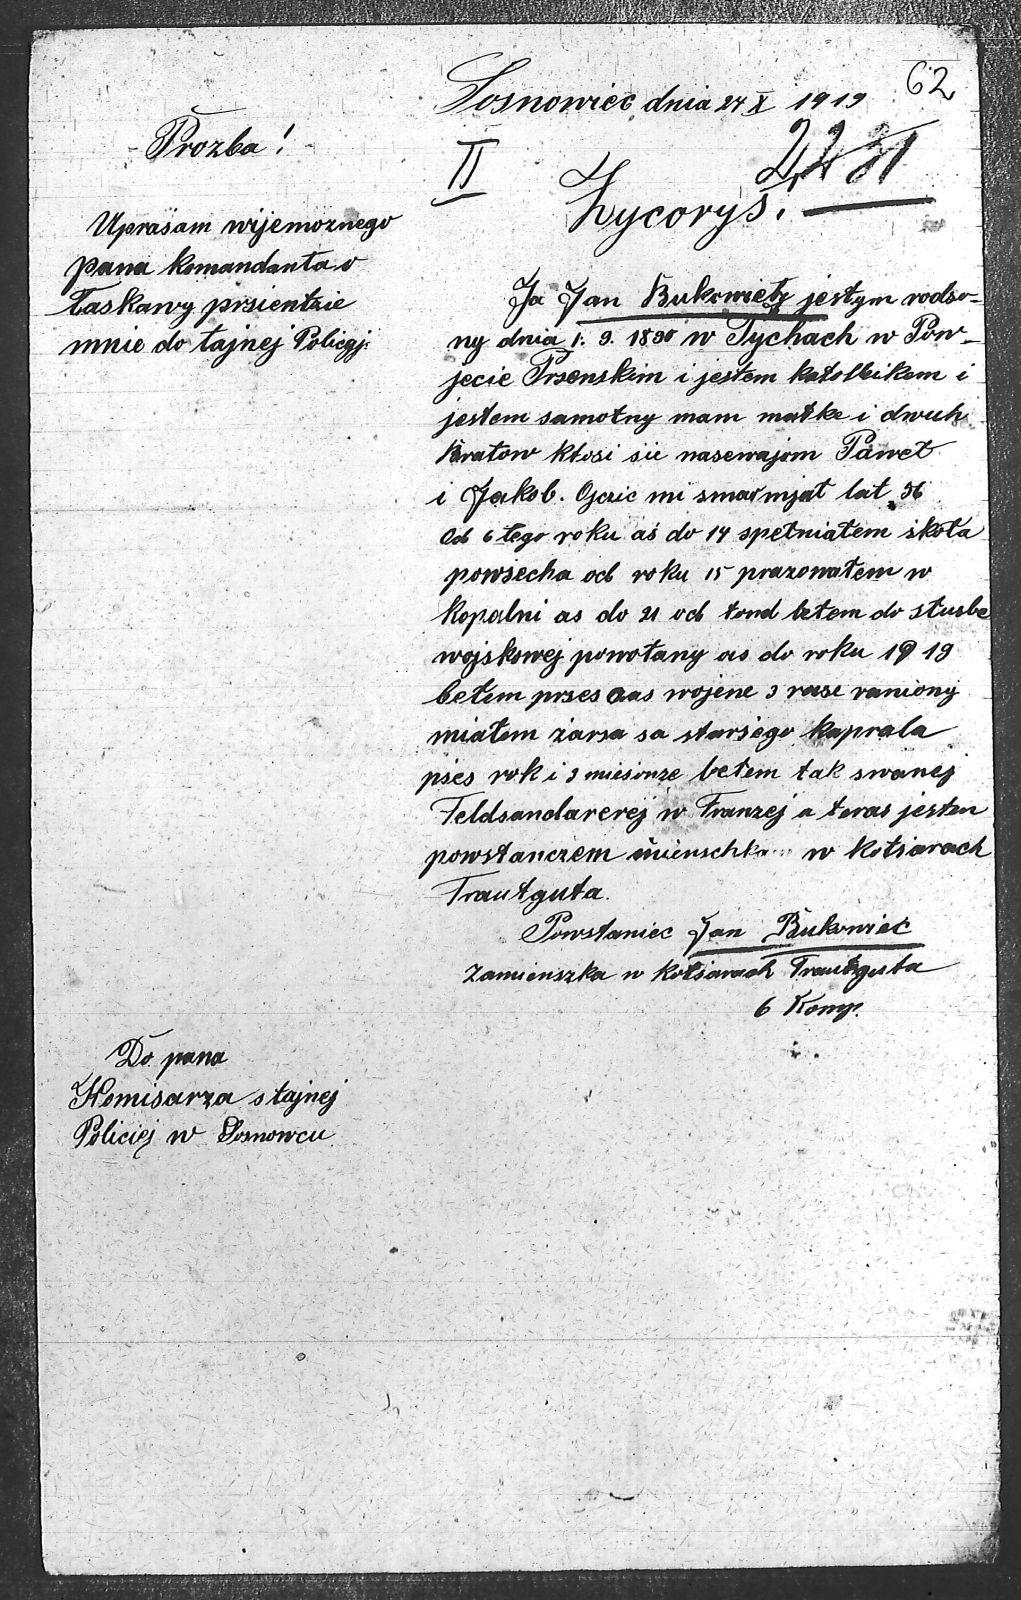 62
Sosnowiec dnia 27 X 1919
Prozba!
II
Zycorys!
Uprasam wijemoznego
pana komandanta o
Łaskawy prsientzie
mnie do tajnej Policyj.
Ja Jan Bukowietz jestym rodso-
ny dnia 1. 9. 1890 w Tychach w Pow-
jecie Prsenskim i jestem katolbikem i
jestem samotny mam matke i dwuh
Bratow ktosi sie nasewajom Paweł
i Jakob. Ojczic mi smar mjał lat 56
Od 6 tego roku as do 14 spełniałem skoła
powsecha od roku 15 prazowałem w
kopalni as do 21 od tond bełem do stusbe
wojskowej powołany as do roku 1919
bełem prses cas wojene 3 rase raniony
miałem zarsa sa starsego kaprala
pses rok i 3 miesonze bełem tak swanej
Feldsandarerej w Franzej a teras jestem
powstanczem w kotsarach
Trautguta.
Powstaniec Jan Bukowiec
Zamienszka w kotsarach Trautguta
6 Komp.
Do pana
Komisarza stajnej
Policiej w Sosnowcu